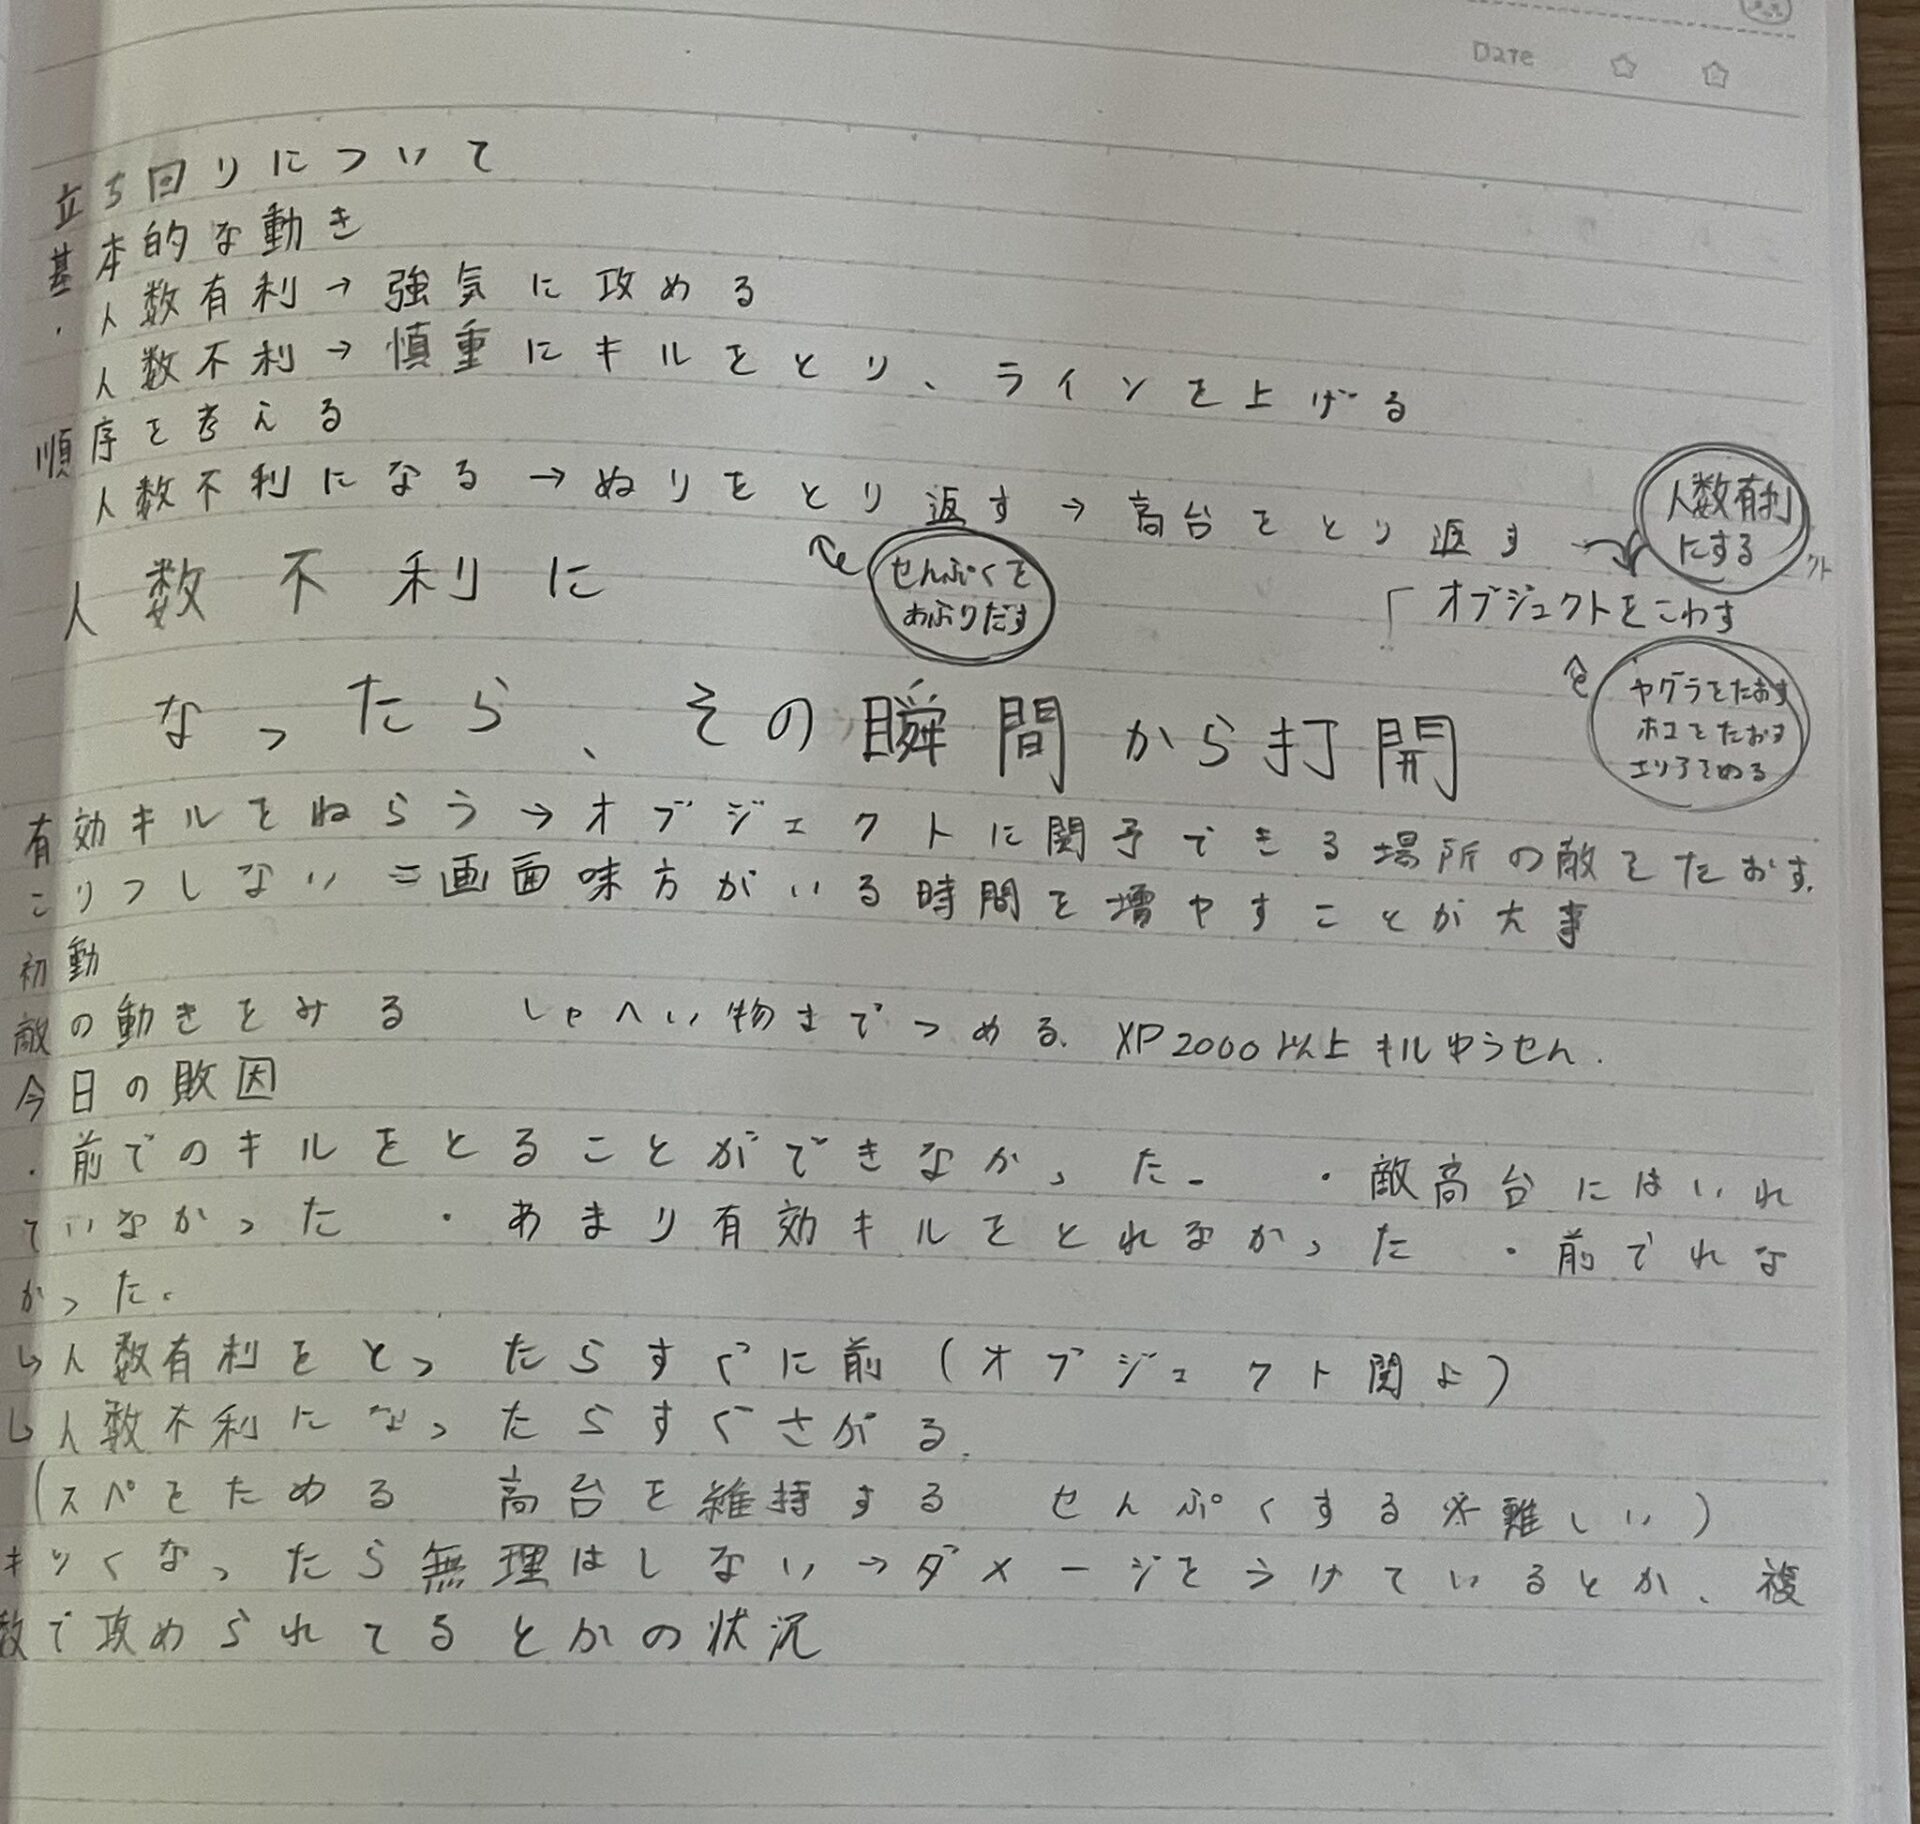 Date
立ち回りについて
基本的な動き
・人数有利→強気に攻める
人数不利→慎重にキルをとり、ラインを上げる
順序を考える
人数不利になる→ぬりをとり返す→高台をとり返す
人数有利
にする
せんぷくを
あぶりだす
オブジェクトをこわす
ヤグラをたおす
ホコをたおす
エリアをめる
人数不利に
なったら、その瞬間から打開
有効キルをねらう→オブジェクトに関予できる場所の敵をたおす.
こリフしない=画面味方がいる時間を増やすことが大事
初動
敵の動きをみる しゃへい物までつめる. XP2000以上キルゆうせん.
今日の敗因
・前でのキルをとることができなかった. ・敵高台にはいれ
ていなかった ・あまり有効キルをとれなかった ・前でれな
かった.
↳人数有利をとったらすぐに前(オブジェクト関よ)
↳人数不利になったらすぐさがる.
(スペをためる 高台を維持する せんぷくする※難しい)
キツくなったら無理はしない→ダメージをうけているとか、複
数で攻められてるとかの状況